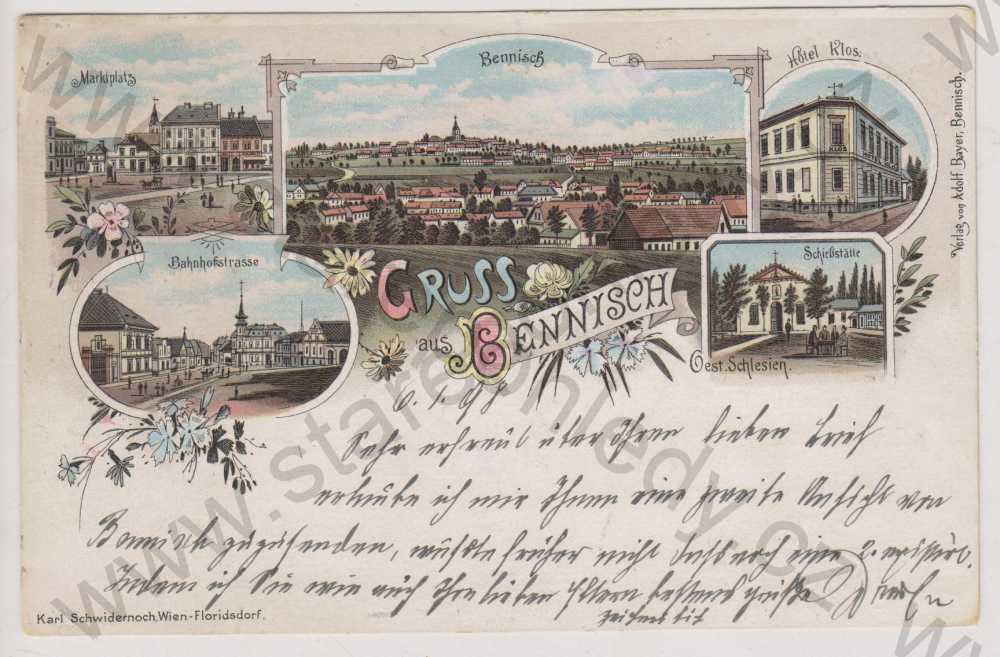 Marktplatz
Bennisch
Hôtel Klos.
Verlag von Adolf Bayer, Bennisch.
Bahnhofstrasse
Schießstätte
GRUSS
aus BENNISCH
Oest. Schlesien.
6.1.98
Sehr erfreut über Ihren lieben Brief
erlaube ich mir Ihnen eine zweite Ansicht von
Bennisch zuzusenden, wußte früher nicht daß noch eine 2. existirt.
Indem ich Sie wie auch Ihre lieben Eltern bestens grüße
zeichnet
Karl Schwidernoch, Wien-Floridsdorf.
www.stareohledy.cz